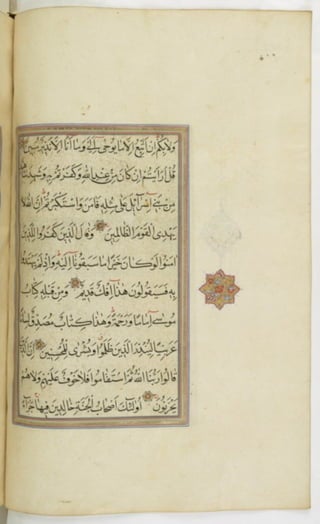 ولا بكم ان اتبع الا ما يوحى الي وما انا الا نذير مبين
قل ارايتم ان كان من عند الله وكفرتم به وشهد شاهد
من بني اسرآئيل على مثله فامن واستكبرتم ان الله لا
يهدى القوم الظالمين وقال الذين كفروا للذين
امنوا لو كان خيرا ما سبقونا اليه واذ لم يهتدوا
به فسيقولون هذا افك قديم ومن قبله كتاب
موسى اماما ورحمة وهذا كتاب مصدق لسانا
عربيا لينذر الذين ظلموا وبشرى للمحسنين ان الذين
قالوا ربنا الله ثم استقاموا فلا خوف عليهم ولا هم
يحزنون اولئك اصحاب الجنة خالدين فيها جزآء